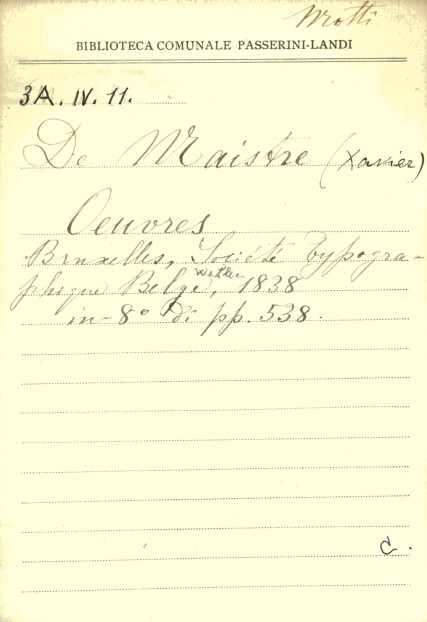 BIBLIOTECA COMUNALE PASSERINI-LANDI
3A. IV. 11.
De Maistre (Xavier)
Oeuvres
Bruxelles, Société typogra-
phique Belge, 1838
in-8° di pp. 538.
C.